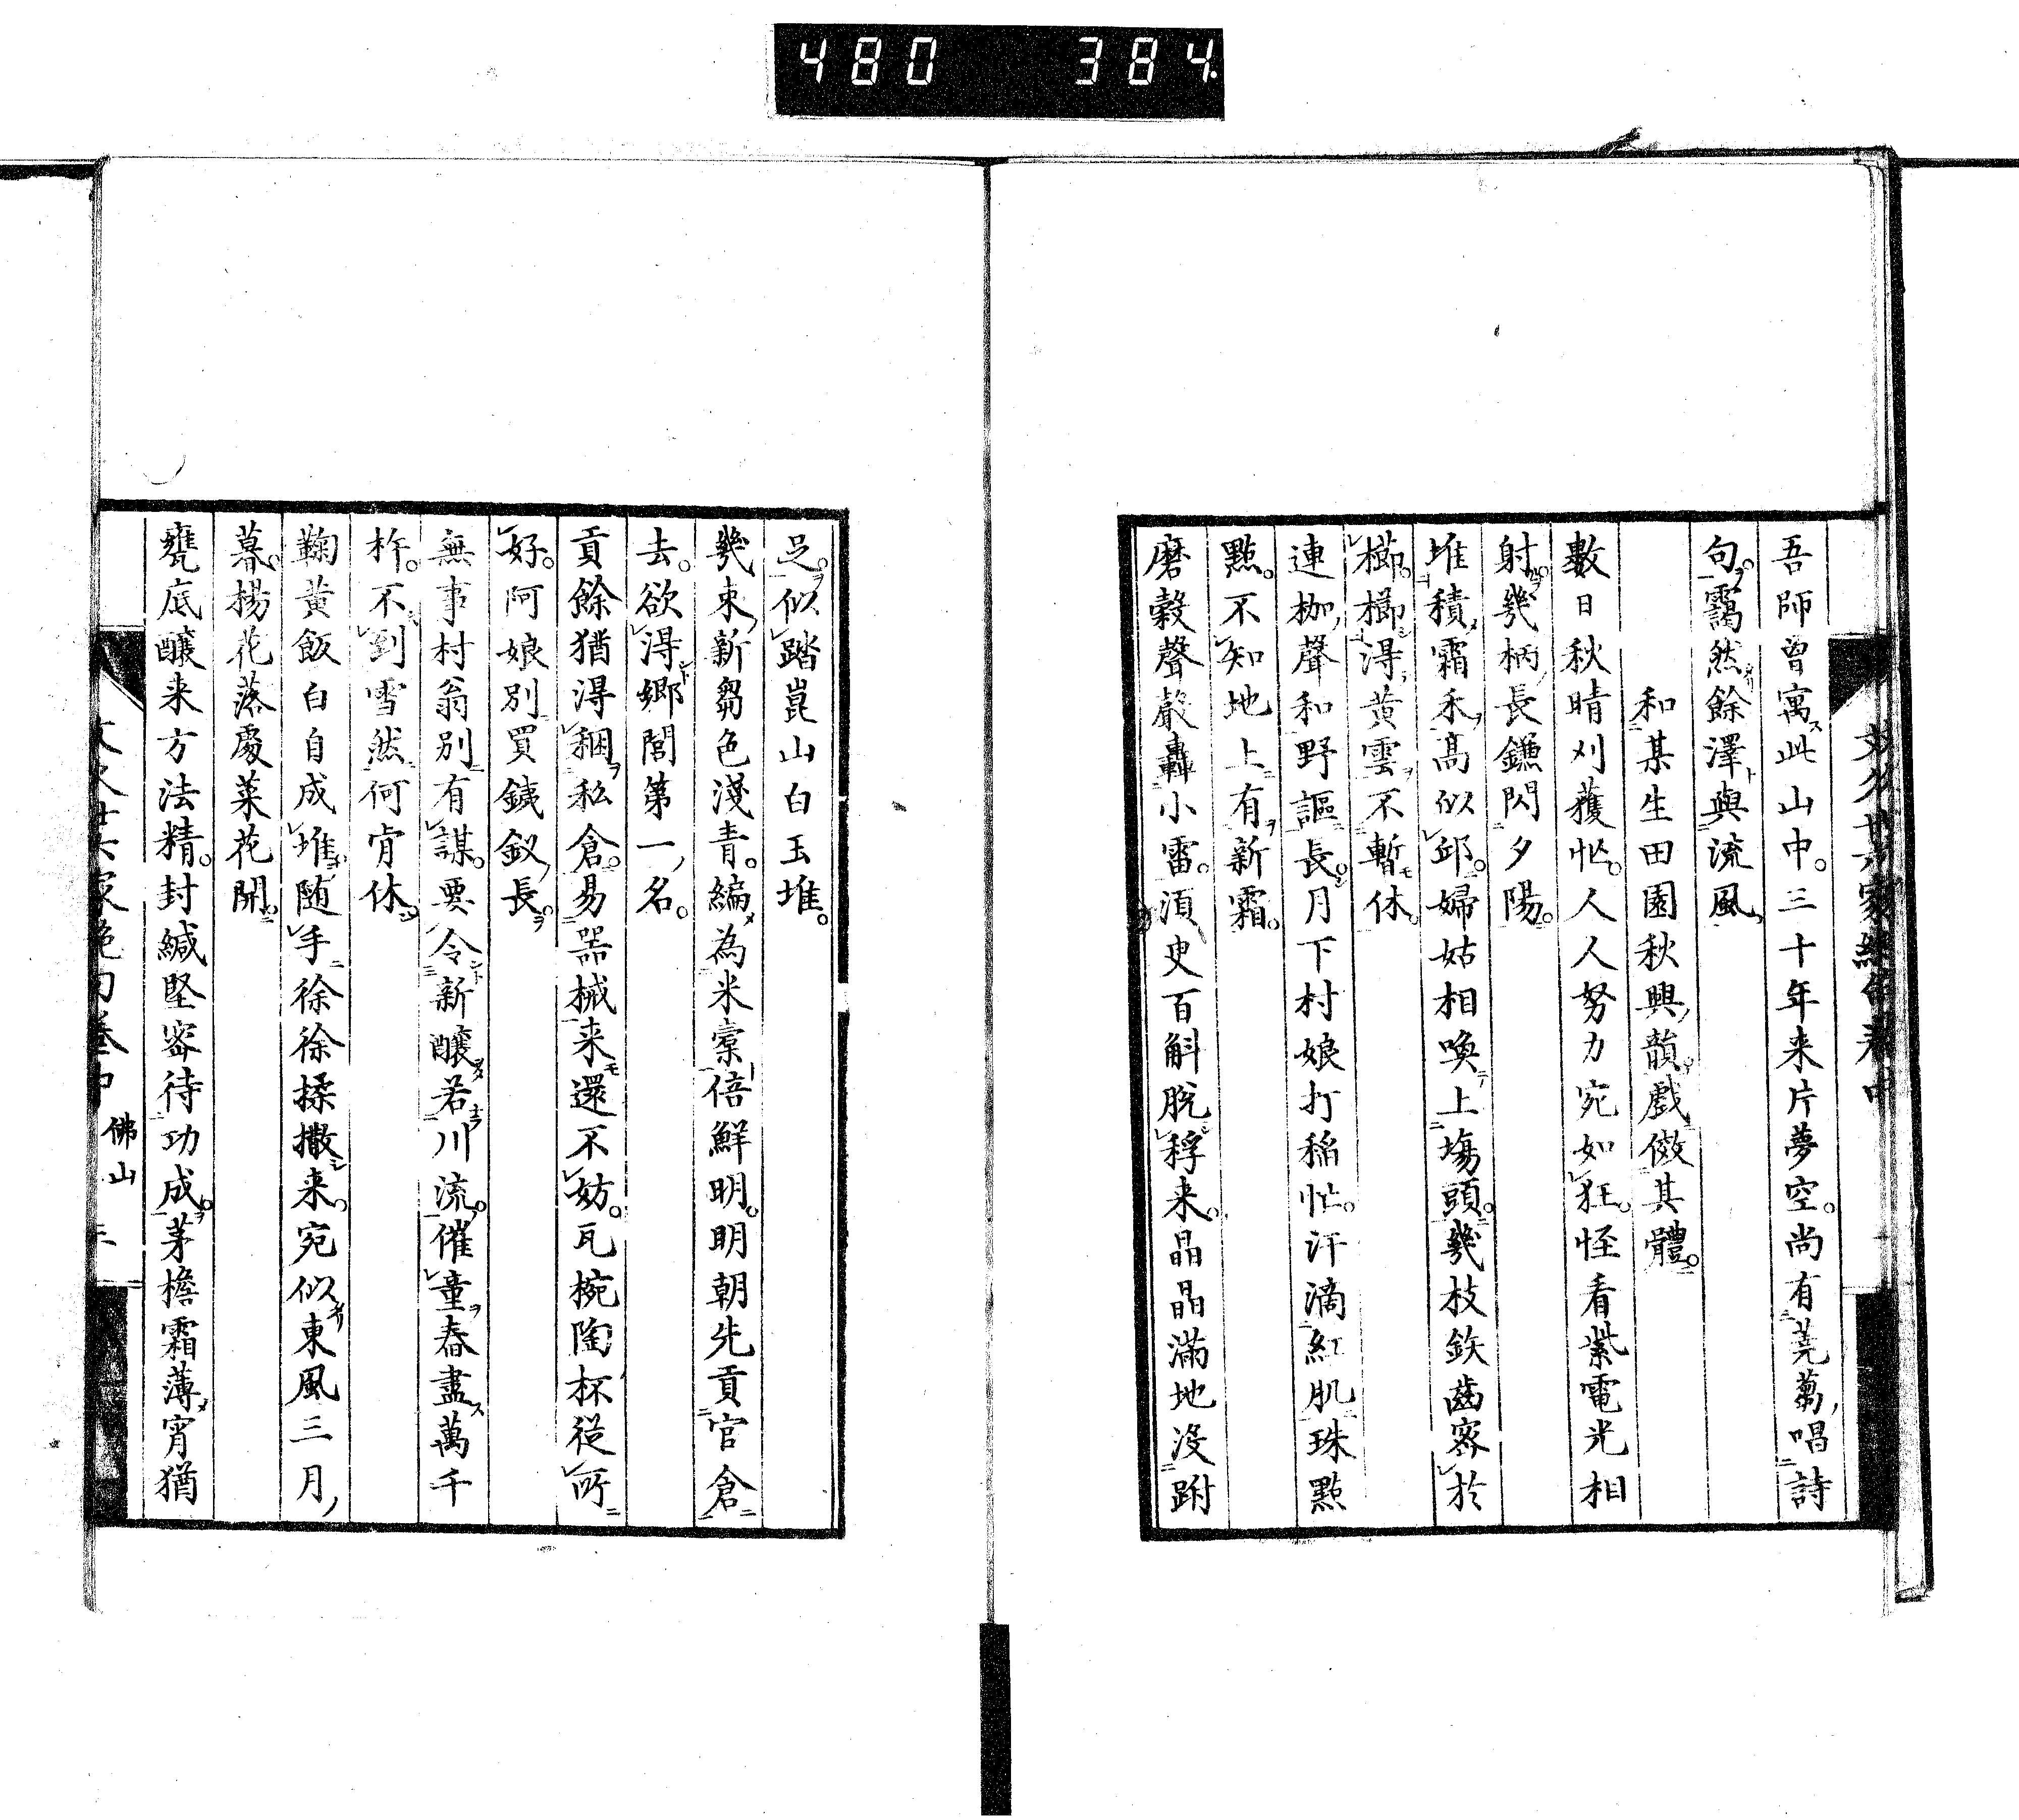 480 384
吾師曽寓此山中。三十年来片夢空。尚有蒭蕘唱詩
句。靄然餘澤與流風
和某生田園秋興韻戲傚其體。
數日秋晴刈獲忙。人人努力宛如狂。怪看紫電光相
射。幾柄長鎌閃夕陽。
堆積霜禾高似邱。婦姑相喚上塲頭。幾枝鉄齒密於
櫛。櫛得黄雲不暫休。
連枷聲和野謳長。月下村娘打稲忙。汗滴紅肌珠點
點。不知地上有新霜。
磨穀聲聲轟小雷。湏臾百斛脱稃来。晶晶滿地沒跗
足。似踏崑山白玉堆。
幾束新蒭色淺青。編為米稾倍鮮明。明朝先貢官倉
去。欲得郷閭第一名。
貢餘猶得稇私倉。易噐械来還不妨。瓦椀陶杯從所
好。阿娘別買銕釵長。
無事村翁別有謀。要令新釀若川流。催童舂盡萬千
杵。不到雪然何肯休。
麴黄飯白自成堆。随手徐徐揉撒来。宛似東風三月
暮。楊花落處菜花開。
甕底釀来方法精。封緘堅密待功成。茅檐霜薄宵猶
佛山